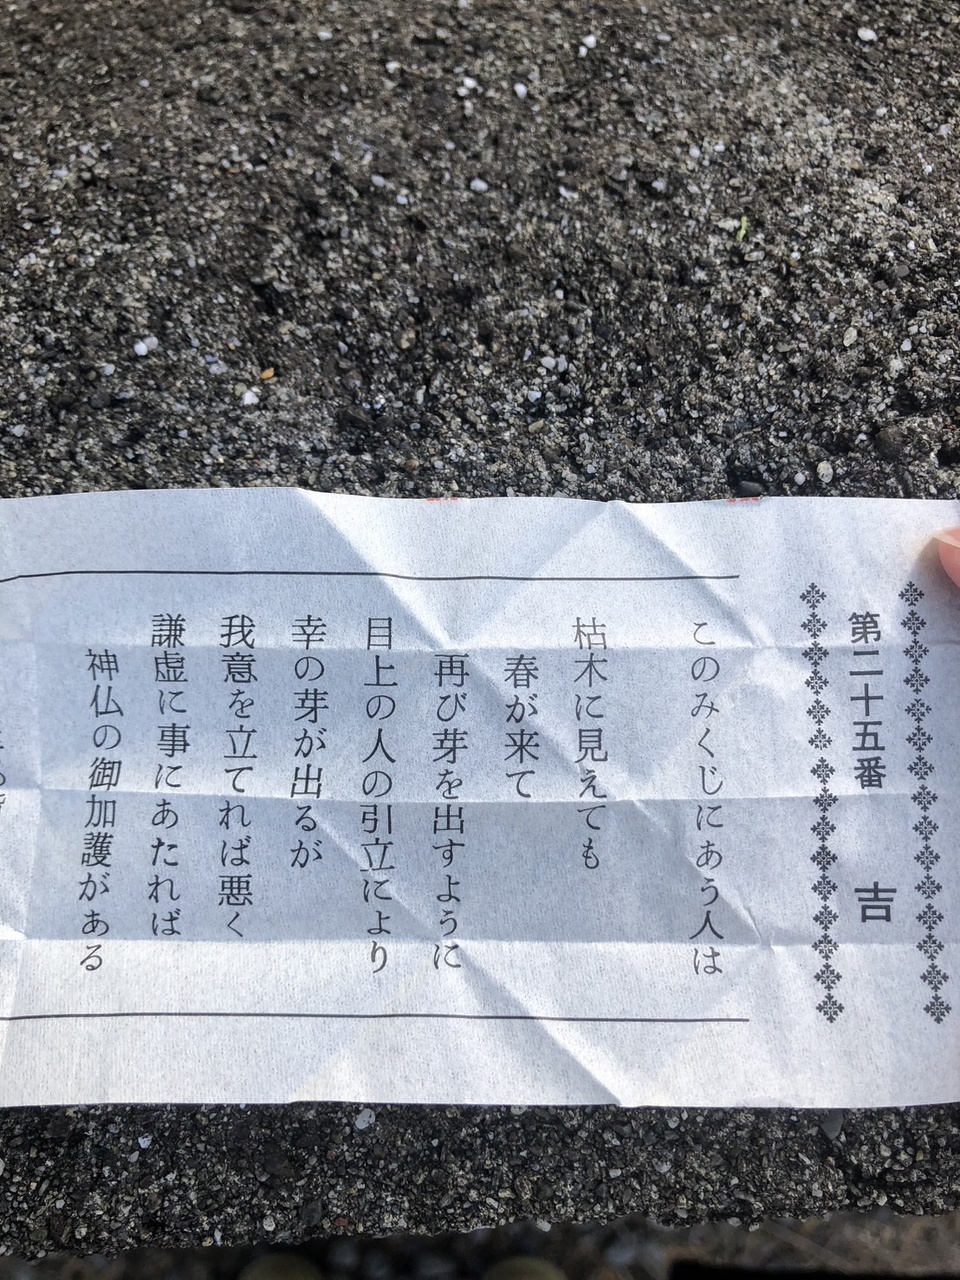 第二十五番 吉
このみくじにあう人は
枯木に見えても
春が来て
再び芽を出すように
目上の人の引立により
幸の芽が出るが
我意を立てれば悪く
謙虚に事にあたれば
神仏の御加護がある